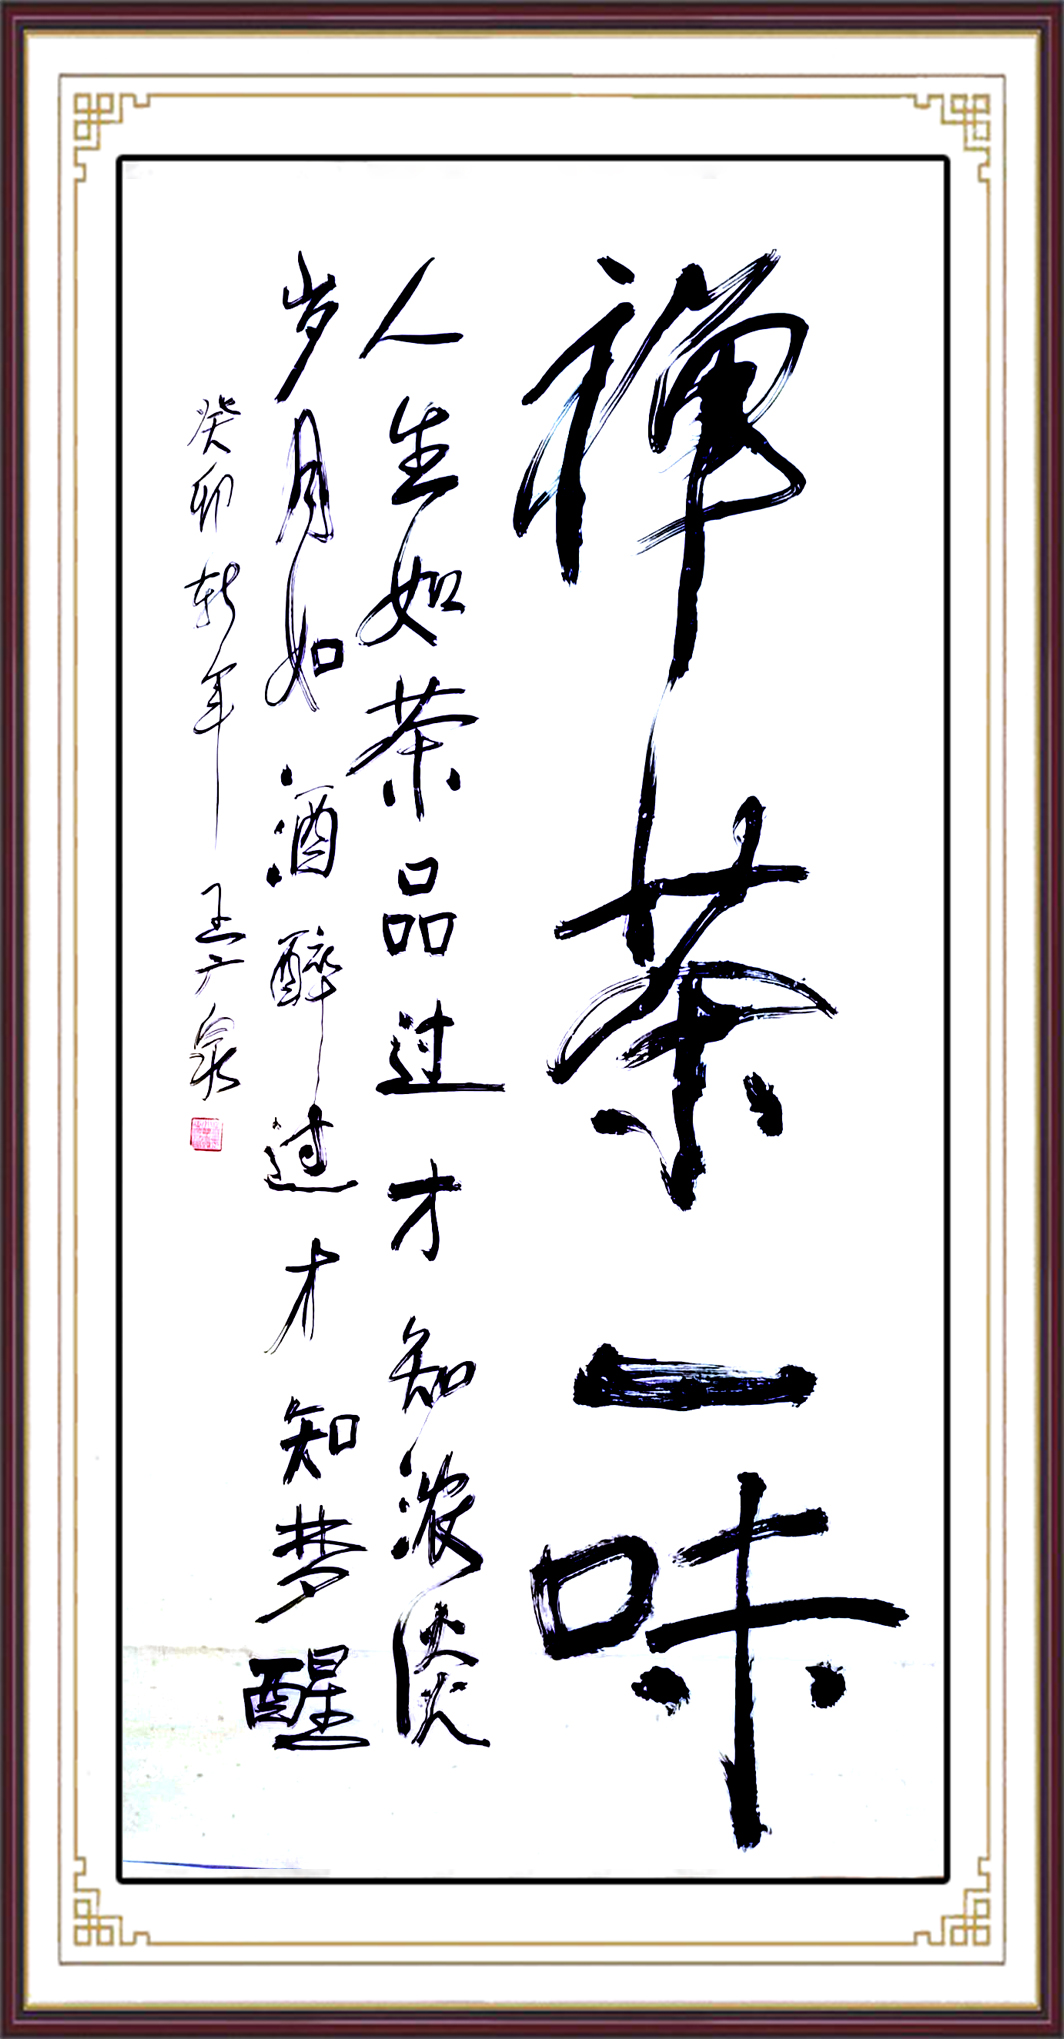 禅茶一味
人生如茶品过才知浓淡
岁月如酒醉过才知梦醒
癸卯新年 王广泉